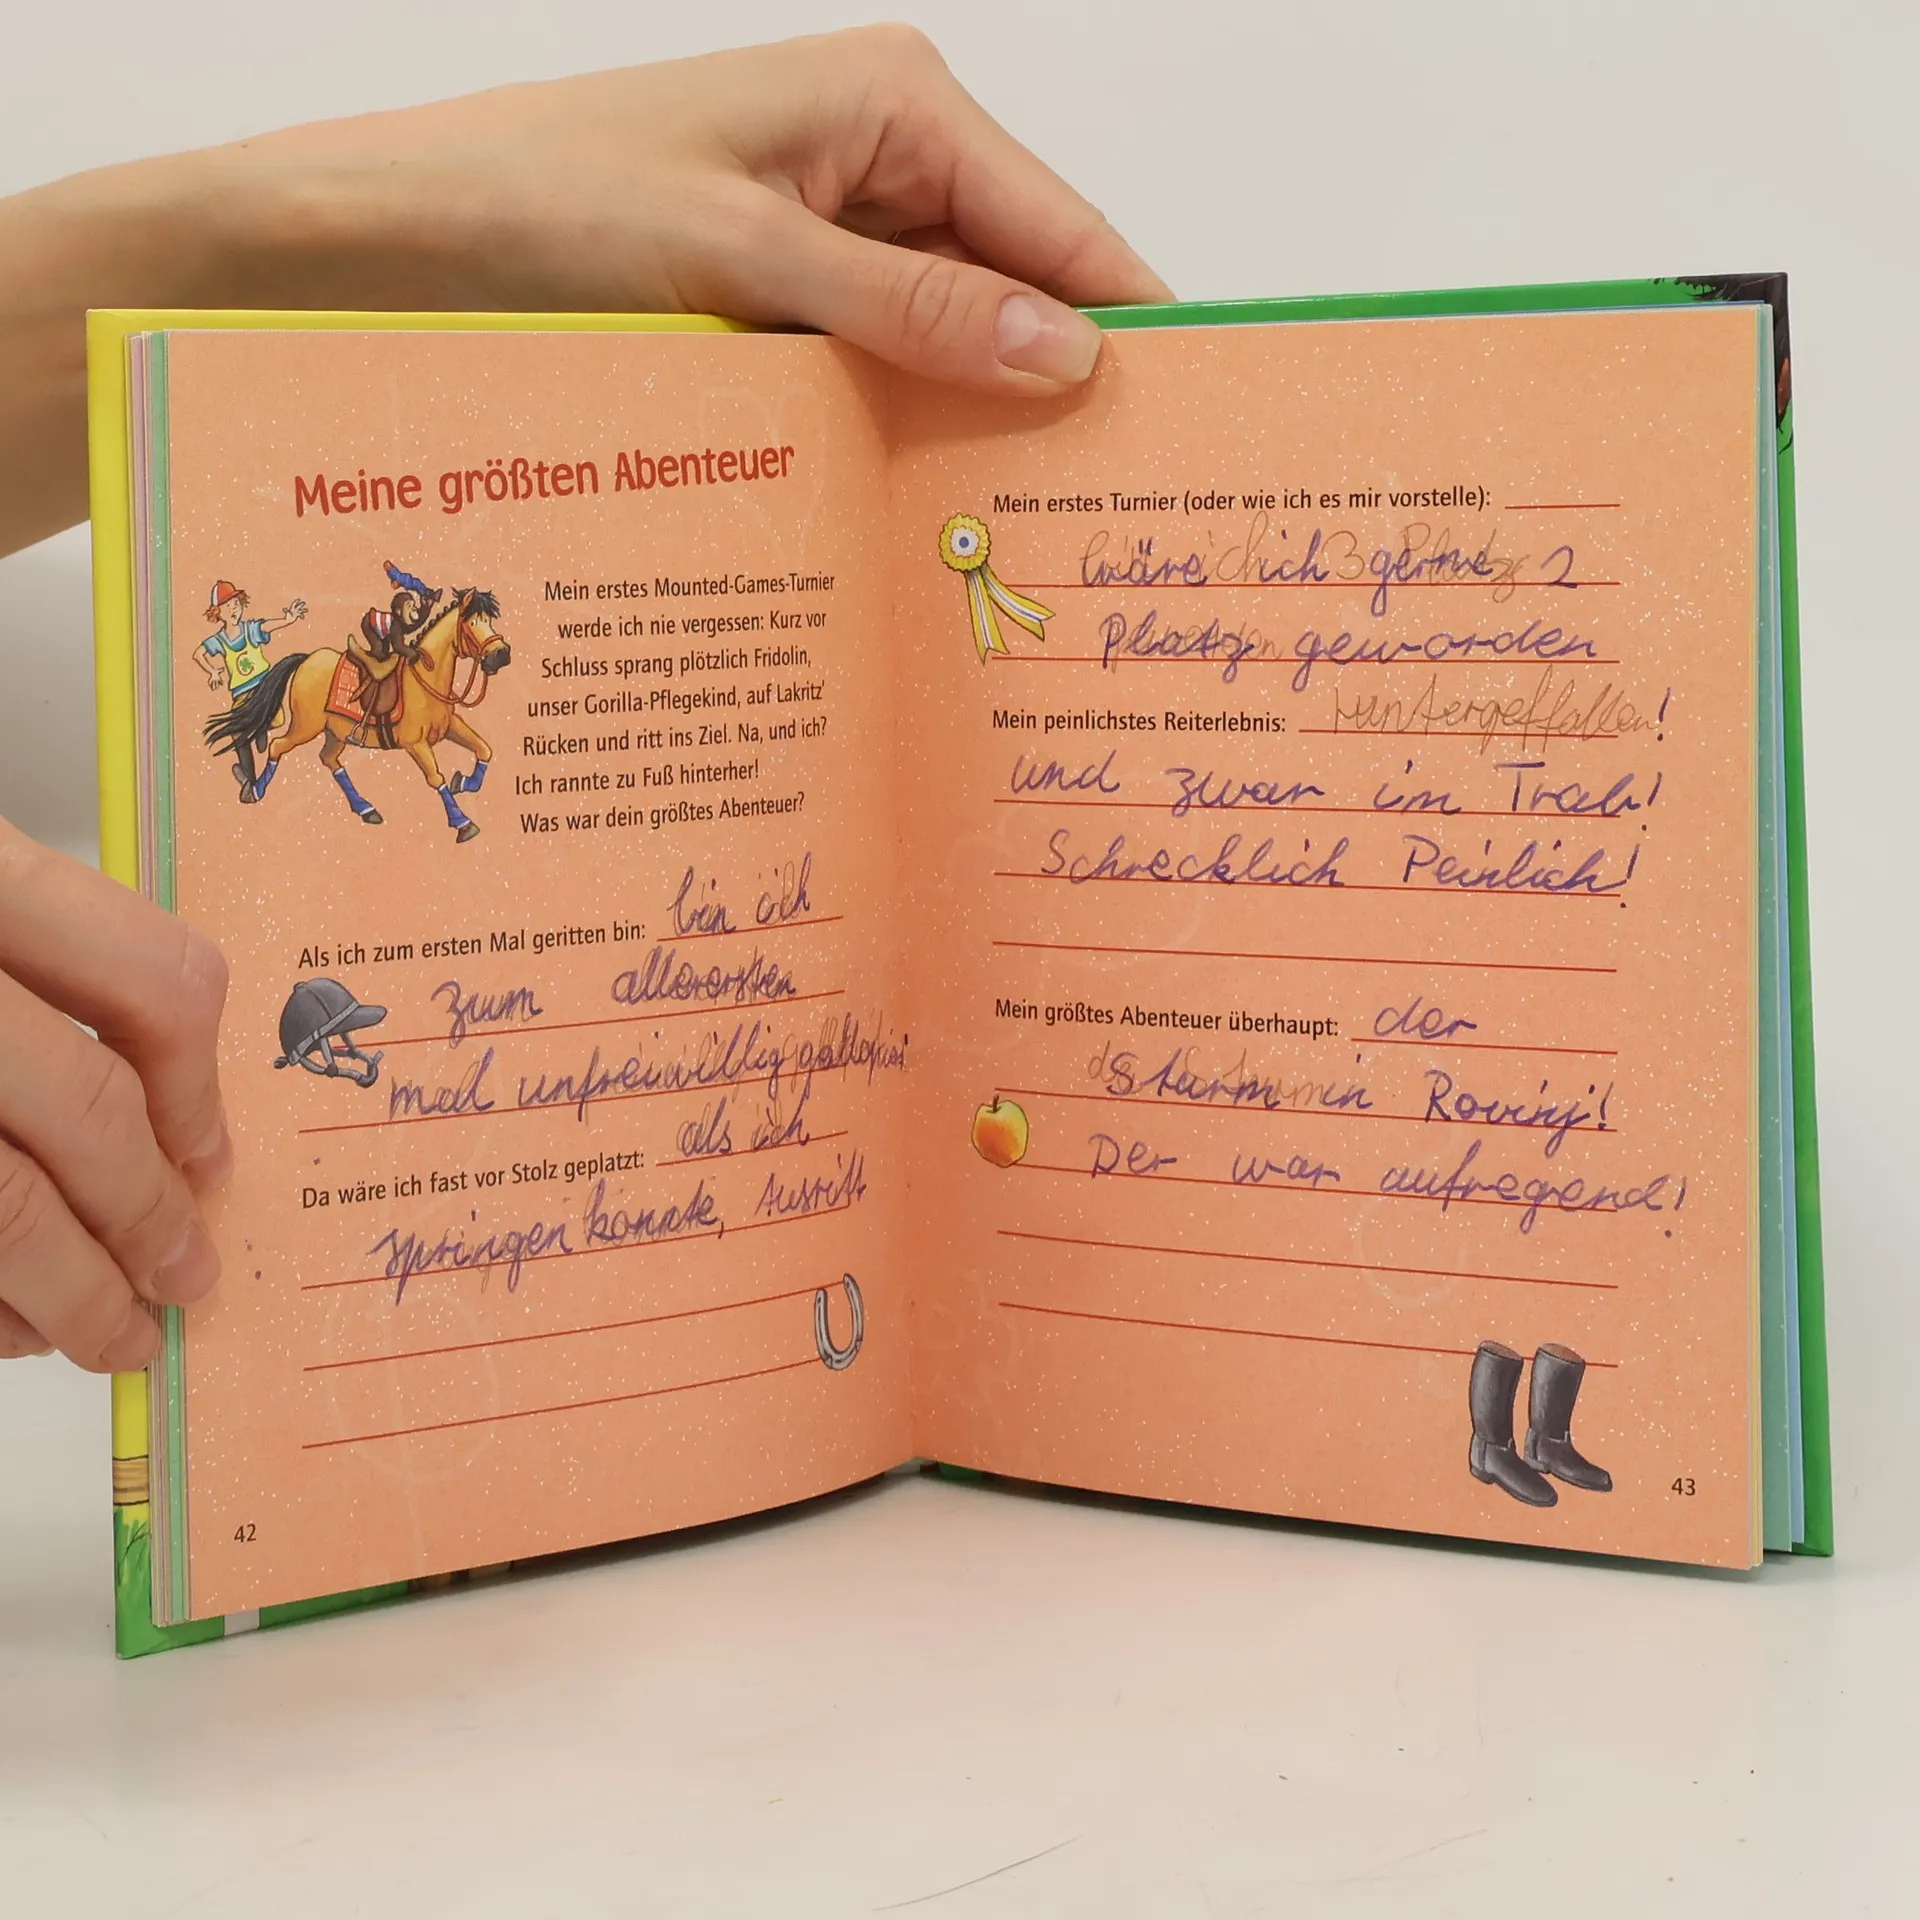 Meine größten Abenteuer
Mein erstes Mounted-Games-Turnier
werde ich nie vergessen: Kurz vor
Schluss sprang plötzlich Fridolin,
unser Gorilla-Pflegekind, auf Lakritz'
Rücken und ritt ins Ziel. Na, und ich?
Ich rannte zu Fuß hinterher!
Was war dein größtes Abenteuer?
Als ich zum ersten Mal geritten bin: bin ich
zum allerersten
mal unfreiwillig
Da wäre ich fast vor Stolz geplatzt: als ich
springen konnte, Ausritt
42
Mein erstes Turnier (oder wie ich es mir vorstelle):
wäre ich gerne 2
Platz geworden
Mein peinlichstes Reiterlebnis: runtergeffallen!
und zwar im Trab!
Schrecklich Peinlich!
Mein größtes Abenteuer überhaupt: der
Sturm in Rovinj!
Der war aufregend!
43